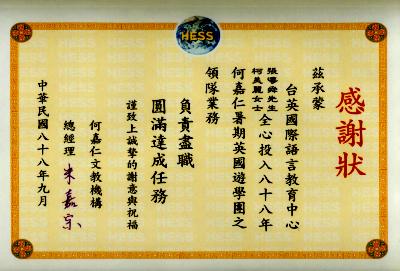 HESS
感謝狀
茲承蒙
台英國際語言教育中心
張學舜先生
柯美麗女士
全心投入八十八年
何嘉仁暑期英國遊學團之
領隊業務
負責盡職
圓滿達成任務
謹致上誠摯的謝意與祝福
何嘉仁文教機構
總經理 朱嘉宗
中華民國八十八年九月